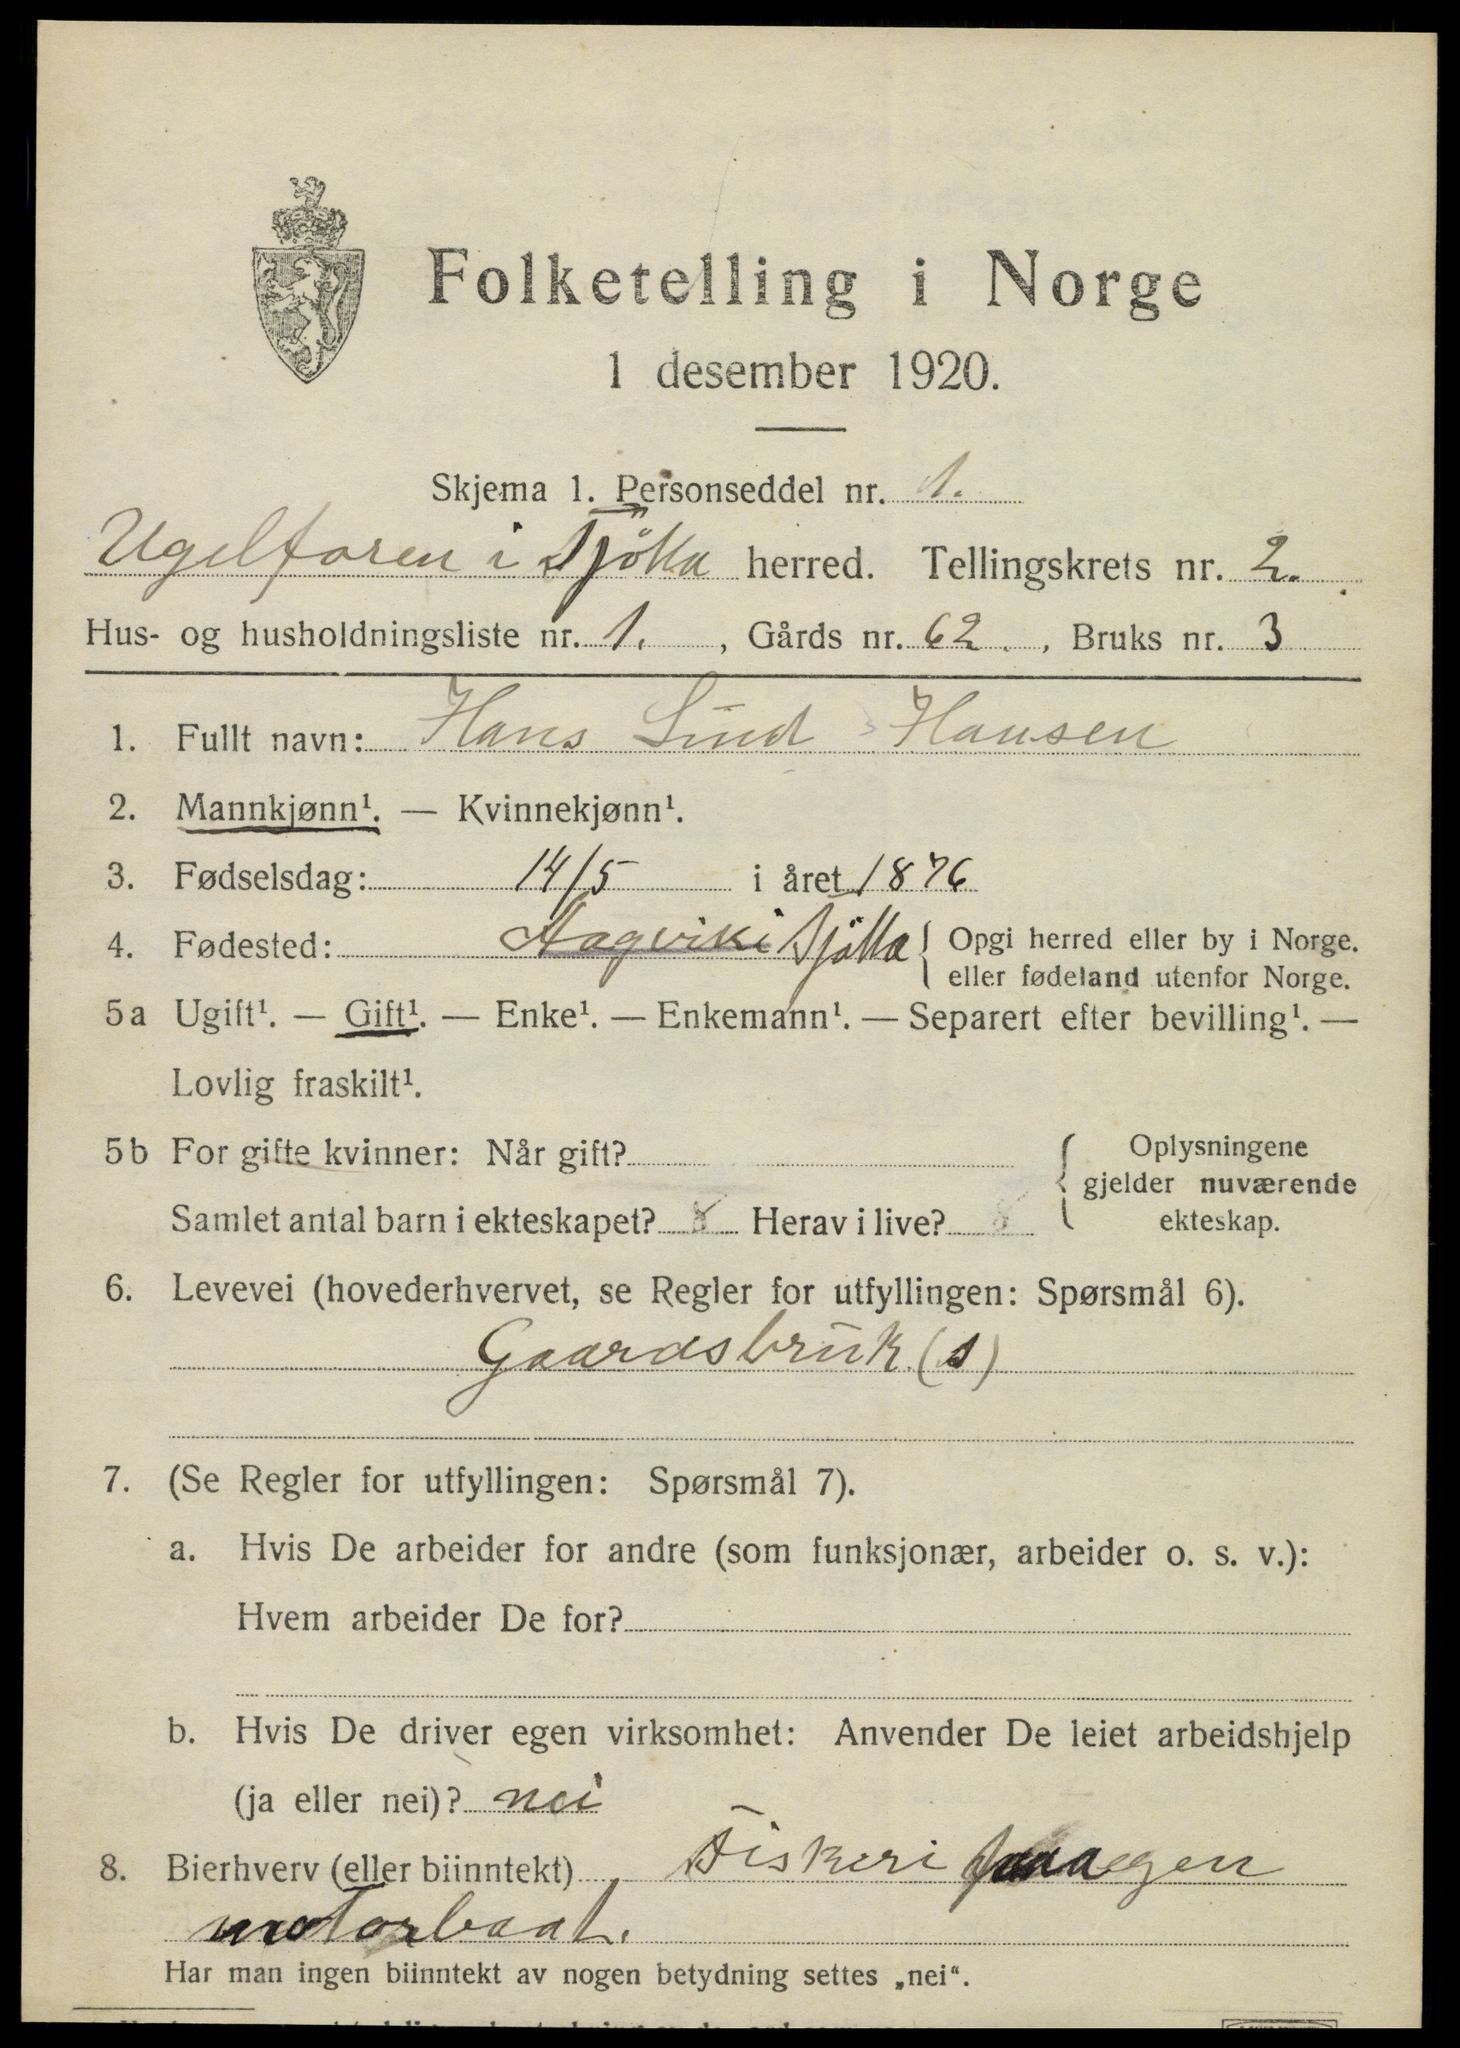 Folketelling i Norge
1 desember 1920.
Skjema 1. Personseddel nr. 1.
Ugelforen i Tjötta herred. Tellingskrets nr. 2.
Hus- og husholdningsliste nr. 1. , Gårds nr. 62. , Bruks nr. 3
1. Fullt navn: Hans Lind Hansen
2. Mannkjønn¹. — Kvinnekjønn¹.
3. Fødselsdag: 14/5 i året 1876
4. Fødested: Aagvik i Tjötta { Opgi herred eller by i Norge.
eller fødeland utenfor Norge.
5a Ugift¹. — Gift¹. — Enke¹. — Enkemann¹. — Separert efter bevilling¹. —
Lovlig fraskilt¹.
5b For gifte kvinner: Når gift? { Oplysningene
gjelder nuværende
Samlet antal barn i ekteskapet? Herav i live? ekteskap.
6. Levevei (hovederhvervet, se Regler for utfyllingen: Spørsmål 6).
Gaardsbruk (s)
7. (Se Regler for utfyllingen: Spørsmål 7).
a. Hvis De arbeider for andre (som funksjonær, arbeider o. s. v.):
Hvem arbeider De for?
b. Hvis De driver egen virksomhet: Anvender De leiet arbeidshjelp
(ja eller nei)? nei
8. Bierhverv (eller biinntekt) Fiskeri paa egen
motorbaat.
Har man ingen biinntekt av nogen betydning settes „nei“.